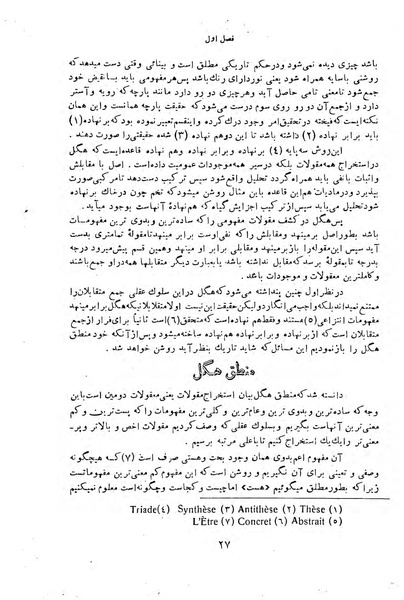 فصل اول
باشد چیزی دیده نمی‌شود و درحکم تاریکی مطلق است و بینائی وقتی دست میدهد که
روشنی باسایه همراه شود یعنی نور دارای رنگ باشد پس هر مفهومی باید با نقیض خود
جمع شود تا معنی تامی حاصل آید و هر چیزی دو رو دارد مانند پارچه که رویه و آستر
دارد و از جمع آن دو رو روی سوم درست می‌شود که حقیقت پارچه همانست و این همان
نکته‌ایست که فیخته در تحقیق امر وجود درک کرده و اینقسم تعبیر نموده بود که برنهاده (۱)
باید برابر نهاده (۲) داشته باشد تا این دو هم نهاده (۳) شده حقیقتی را صورت دهند.
این روش سه‌پایه (۴) برنهاده و برابر نهاده وهم نهاده قاعده‌ایست که هگل
در استخراج همه مقولات بلکه در سیر همه موجودات عمومیت داده است. اصل با مقابلش
واثبات بانفی باید همراه گردد تحلیل واقع شود سپس ترکیب دست دهد تا امر کمی صورت
بپذیرد و در مادیات هم این قاعده باین مثال روشن میشود که تخم چون در خاک برنهاده
شود تحلیل می‌یابد سپس از ترکیب اجزایش گیاه که هم نهادهٔ آنهاست بوجود میآید.
پس هگل در کشف مقولات مفهومی را که ساده‌ترین و بدوی ترین مفهومات
باشد بطور اصل برمینهد و مقابلش را که نفی اوست برابر مینهد تا مقولهٔ تمام‌تری بدست
آید سپس این مقوله را باز برمینهد و مقابلی برابر او مینهد و همین قسم پیش میرود درجه
بدرجه تا بمقولهٔ برسد که مقابل نداشته باشد یا بعبارت دیگر متقابلها همه در او جمع باشند
و کاملترین معقولات و موجودات باشد.
در نظر اول چنین پنداشته می‌شود که هگل در این سلوک عقلی جمع متقابلان را
ممتنع نمیداند بلکه واجب می‌انگارد ولیکن حقیقت این نیست اولا متقابلانیکه هگل برابر مینهد
مفهومات انتزاعی (۵) هستند و فقط هم نهاده است که متحقق (۶) است ثانیاً برای فرار از جمع
متقابلان است که از برنهاده و برابر نهاده هم نهاده ساخته میشود و پس از آنکه خود منطق
هگل را باز نمودیم این مسائل که شاید تاریک بنظر آید روشن خواهد شد.
منطق هگل
دانسته شد که منطق هگل بیان استخراج مقولات یعنی معقولات دومین است باین
وجه که ساده‌ترین و بدوی ترین و عام‌ترین و کلی‌ترین مفهومات را که پست‌ترین و کم
معنی‌ترین آنهاست بگیریم و بسلوک عقلی که وصف کردیم مقولات اخص و بالاتر و پر-
معنی‌تر را یک‌یک استخراج کنیم تا باعلی مرتبه برسیم.
آن مفهوم اعم بدوی همان وجود بحت و هستی صرف است (۷) که هیچگونه
وصفی و تعینی برای آن نگیریم و روشن است که این مفهوم کم معنی‌ترین مفهوماتست
زیرا که بطور مطلق میگوئیم «هست» اما چیست و کجاست و چگونه است معلوم نمیکنیم
(۱) Thèse (۲) Antithèse (۳) Synthèse (۴) Triade
(۵) Abstrait (۶) Concret (۷) L'Être
۲۷